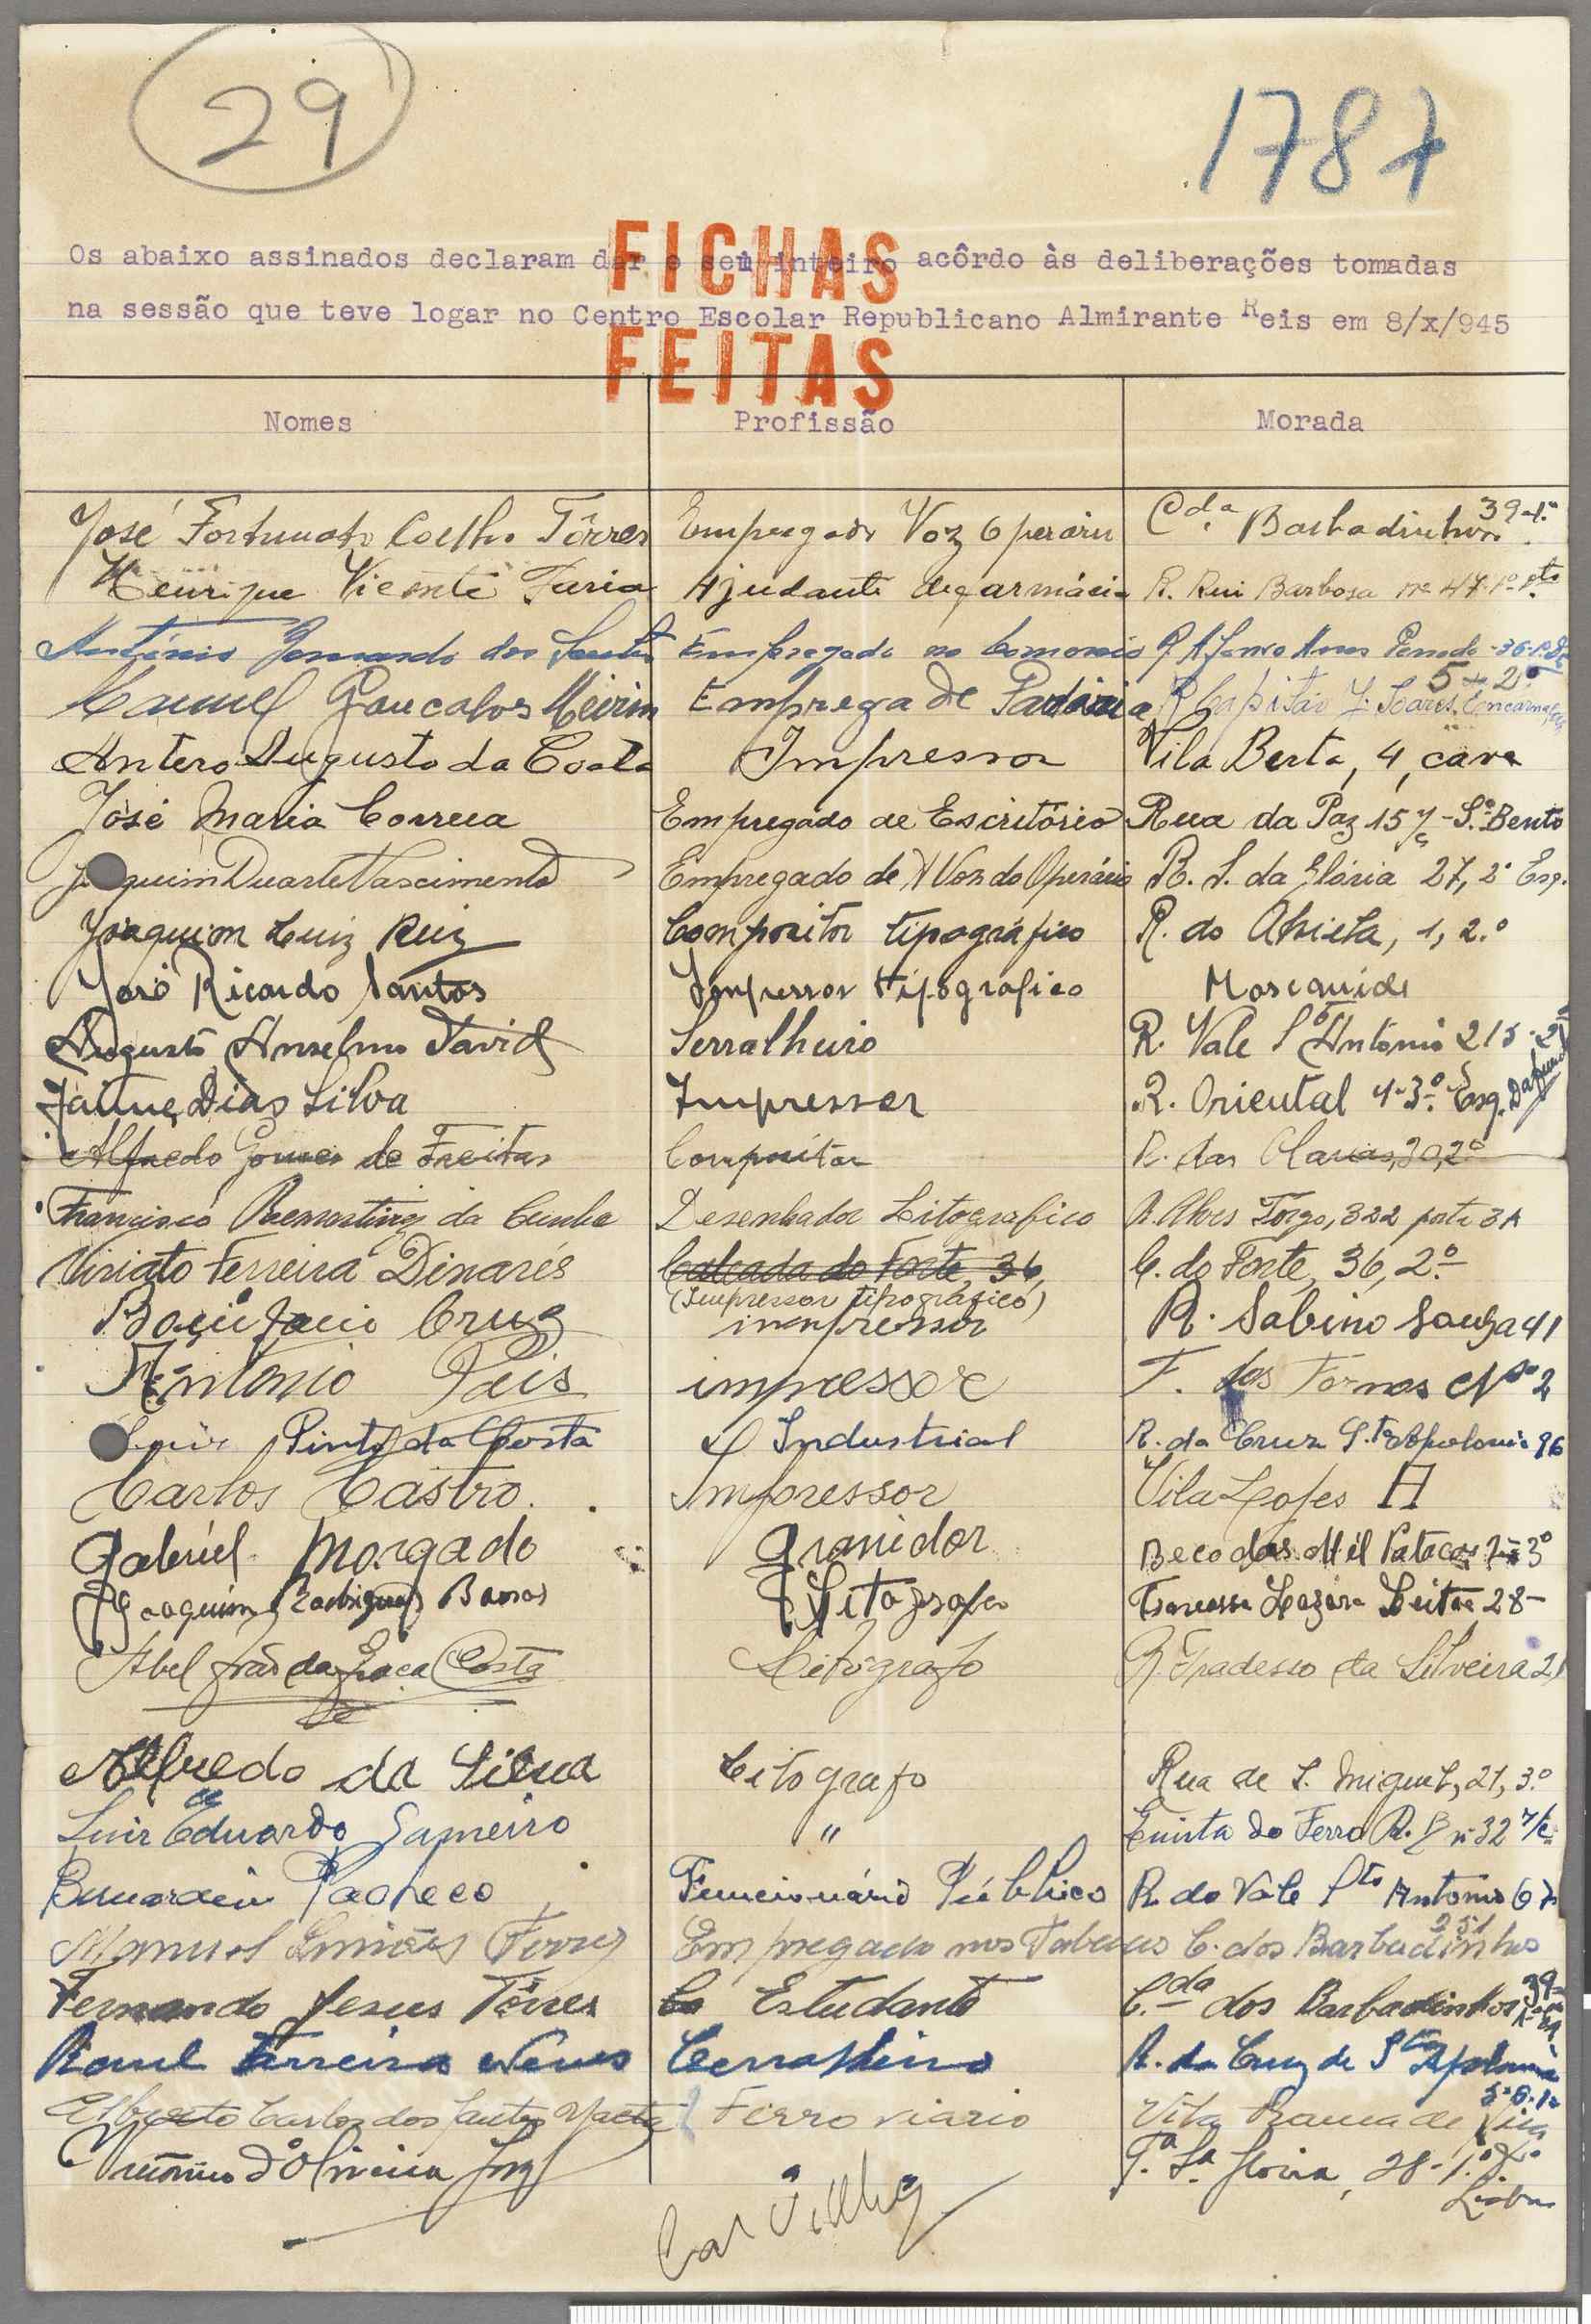 29
1787
FICHAS
FEITAS
Os abaixo assinados declaram dar o seu inteiro acôrdo às deliberações tomadas
na sessão que teve logar no Centro Escolar Republicano Almirante Reis em 8/x/945
Nomes Profissão Morada
José Fortunato Coelho Tôrres Empregado Voz Operário Cda Barbadinhos 39-1º
Henrique Vicente Faria Ajudante de farmácia R. Rui Barbosa nº 47-1º
António dos Santos Empregado no Comercio
Manuel Goncalves Meirim Emprega de Padaria R Capitão Soares Encarnação 5 2º
Antero Augusto da Costa Impressor Vila Berta, 4, cave
José Maria Correia Empregado de Escritório Rua da Paz 15 - S. Bento
Joaquim Duarte Nascimento Empregado de A Voz do Operário 27, 2º Esq.
Joaquim Luiz Ruiz Compositor tipográfico R. do 1, 2.º
José Ricardo Santos Impressor tipografico Moscavide
Augusto Anselmo David Serralheiro R. Vale Sto António 215-2º
Jaime Dias Silva Impressor R. Oriental 4-3º Esq. Dafundo
Alfredo Gomes de Freitas Compositor R. das Olarias, 30, 2º
Francisco da Cunha Desenhador Litografico R. Alves Torgo, 322 porta 3A
Viriato Ferreira Dinarés Calçada do Forte, 36, C. do Forte, 36, 2.º
(Impressor tipográfico)
Bonifacio Cruz impressor R. Sabino Sousa 41
António Pais impressor T. dos Fornos Nº 2
Pinto da Costa Industrial R. da Cruz S.ta Apolonia 96
Carlos Castro. Impressor Vila Lopes H
Gabriel Morgado Granidor Beco dos Mil Patacas 3º
Joaquim Rodrigues Barros Litografo Travessa Lazaro Leitão 28-
Abel da Graça Costa Litógrafo R. Fradesso da Silveira 21
Alfredo da Silva Litografo Rua de S. Miguel, 21, 3.º
Luis Eduardo Gameiro " Quinta do Ferro R. B nº 32 r/c
Bernardin Pacheco Funcionário Público R. do Vale Sto Antonio 67
Manuel Simões Torres Empregado nos Tabacos C. dos Barbadinhos 251
Fernando Jesus Tôrres Estudante C.da dos Barbadinhos 39-
Raul Ferreira Neves Cerralheiro R. da Cruz de Sta Apolonia
Carlos dos Santos Ferroviario Vila
António d'Oliveira T.ª S.ª Gloria, 28-1.º
Lisboa